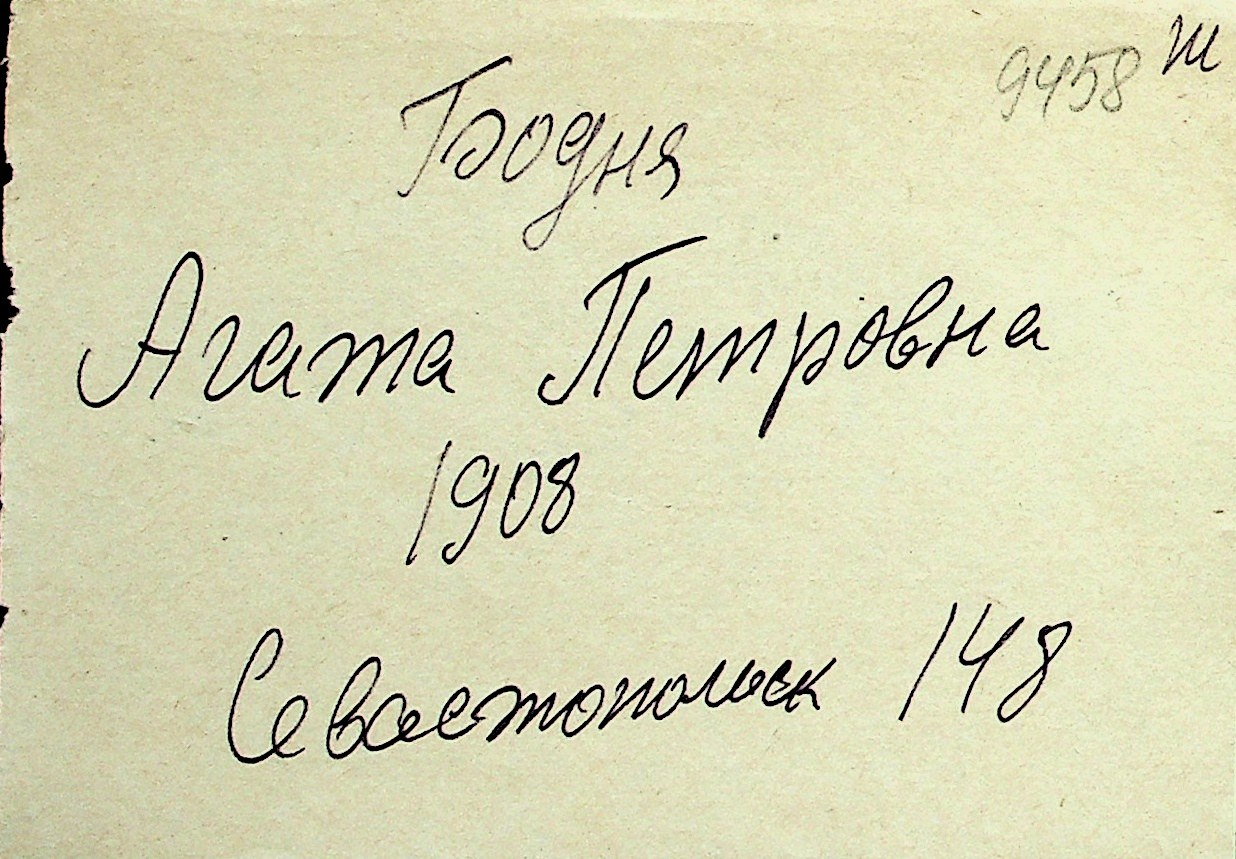 9458 Ш
Бодня
Агата Петровна
1908
Севастопольск 148